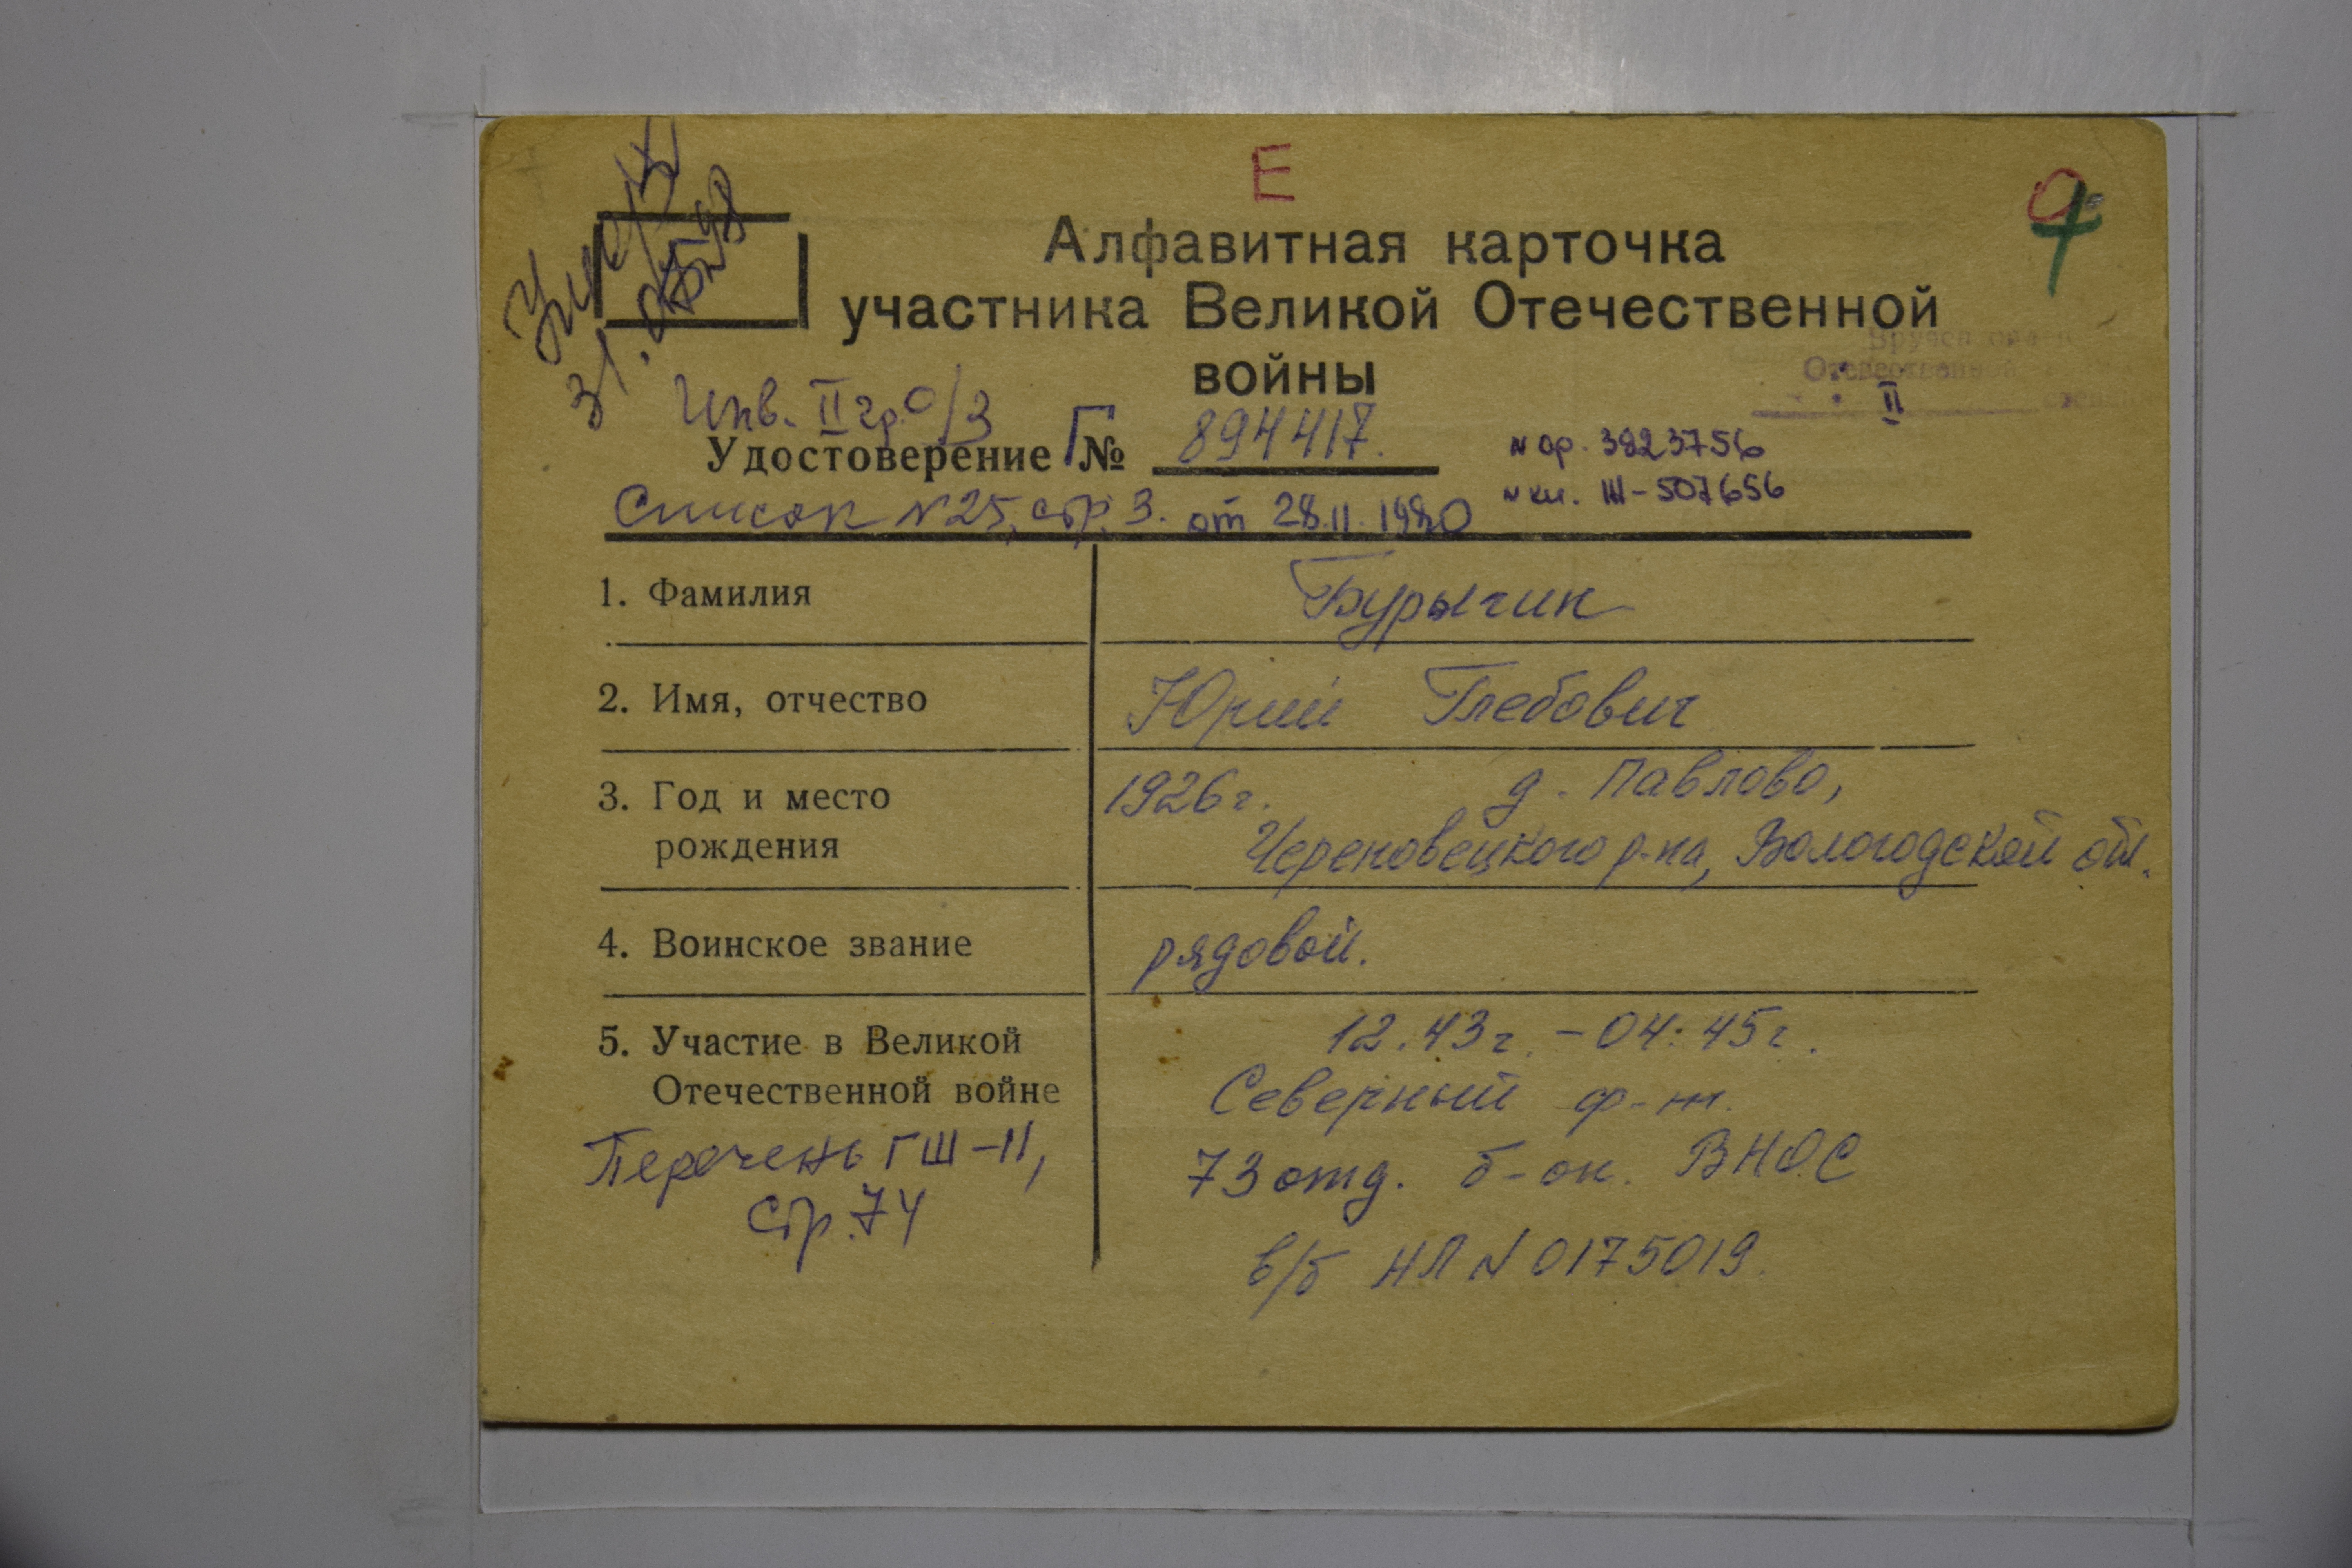 Е
Алфавитная карточка
участника Великой Отечественной
войны
Вручен
Отечественной
II
Инв. II гр. о/з
Удостоверение Г № 894417.
№ ор. 3823756
№ кн. Ш-507656
Список №25, стр. 3. от 28.11.1980
1. Фамилия Бурычин
2. Имя, отчество Юрий Глебович
3. Год и место 1926г. д. Павлово,
рождения Череповецкого р-на, Вологодской обл.
4. Воинское звание рядовой.
5. Участие в Великой 12.43г. - 04.45г.
Отечественной войне Северный ф-т.
Перечень ГШ-11, 73 отд. б-он. ВНОС
стр. 74
в/б НЛ № 0175019.